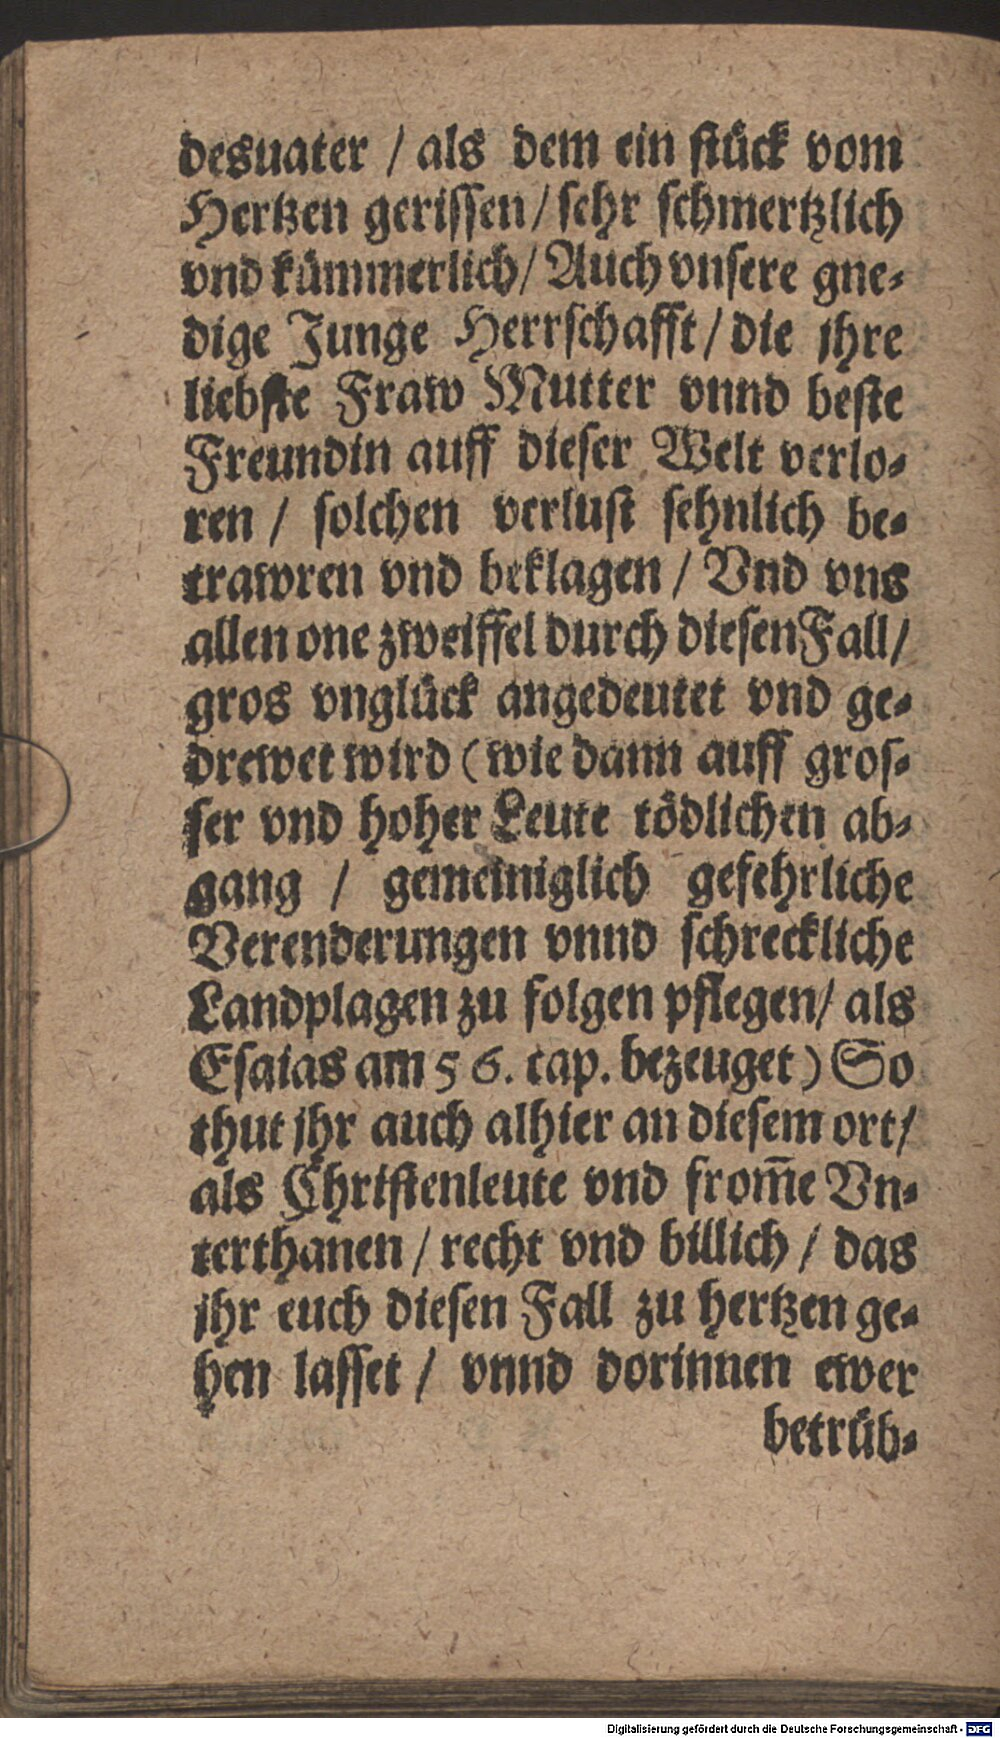 desuater / als dem ein stück vom
Hertzen gerissen / sehr schmertzlich
vnd kümmerlich / Auch vnsere gne⸗
dige Junge Herrschafft / die jhre
liebste Fraw Mutter vnnd beste
Freundin auff dieser Welt verlo⸗
ren / solchen verlust sehnlich be⸗
trawren vnd beklagen / Vnd vns
allen one zweiffel durch diesen Fall /
gros vnglück angedeutet vnd ge⸗
drewet wird (wie dann auff gros⸗
ser vnd hoher Leute tödlichen ab⸗
gang / gemeiniglich gefehrliche
Verenderungen vnnd schreckliche
Landplagen zu folgen pflegen / als
Esaias am 56. cap. bezeuget) So
thut jhr auch alhier an diesem ort /
als Christenleute vnd krom̄e Vn⸗
terthanen / recht vnd billich / das
jhr euch diesen Fall zu hertzen ge⸗
hen lasset / vnnd dorinnen ewer
betrüb⸗
Digitalisierung gefördert durch die Deutsche Forschungsgemeinschaft - DFG